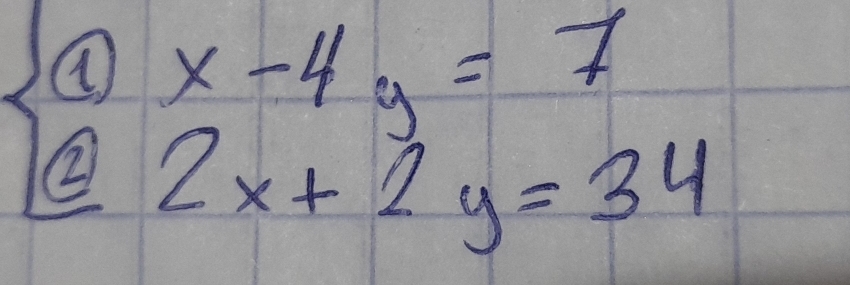 ① x - 4y = 7
② 2x + 2y = 34